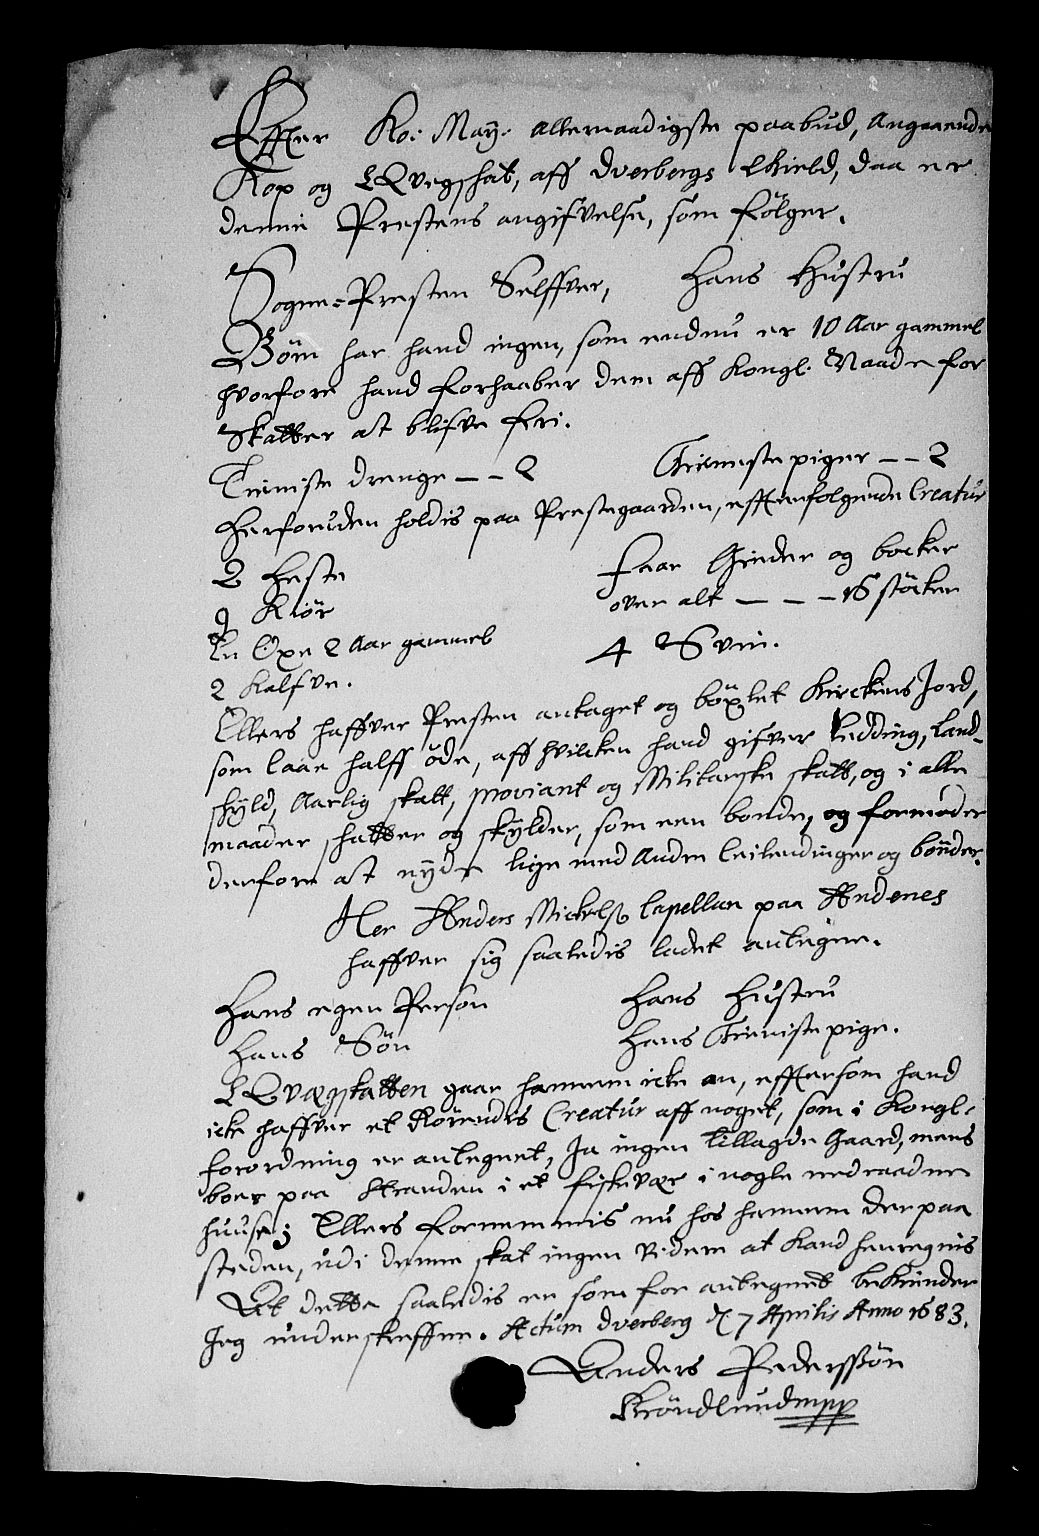 Effter Ko: May: allernaadigste paabud, Angaaende
Kop og Qvegschat, aff dverbergs Kield, daa er
denne Prestens angifvelse, som følger.
Sogne-Presten Selffver, Hans Hustru
Børn har hand ingen, som endnu er 10 Aar gammel
hvorfore hand forhaaber dem aff Kongl. Naade for
Skatter at blifve fri.
Tieniste drenge — — 2 Tienniste piger — — 2
Herforuden holdis paa Prestegaarden, effterfølgende Creatur
2 Heste Faar Gieeder og bocker
9 Kiør over alt — — — 16 støcker
En Oxe 2 Aar gammel 4 Sviin.
2 Kalfve.
Ellers haffver Presten antaget og böxlet Kirckens Jord,
som laae halff øde, aff hvilcken hand gifver Ledding, Land-
skyld, Aarlig skatt, proviant og Militariske skatt, og i alle
maader skatter og skylder, som een bonde, og formoder
derfore at nyde lige med Andre leilendinger og bønder.
Her Anders Mickelsß Capellan paa Andenes
haffver sig saaledis ladet antegne.
Hans egen Person Hans Hustru
Hans Søn Hans Tieniste pige.
Qvægskatten gaar hannem icke an, efftersom hand
icke haffver et Rörendis Creatur aff noget, som i Kongl.
forordning er antegnet, Ja ingen tillagde Gaard, mens
boer paa Stranden i et fiskevær i nogle nedraadne
huuse; Ellers fornemmis nu hos hannem der paa
steden, udi denne skat ingen Videre at kand henregnis
At dette saaledis er som for antegnet bekiender
Jeg underskreffne. Actum dverberg d 7 Aprilis Anno 1683.
Anders Pederssøn
Krøndlund mpp